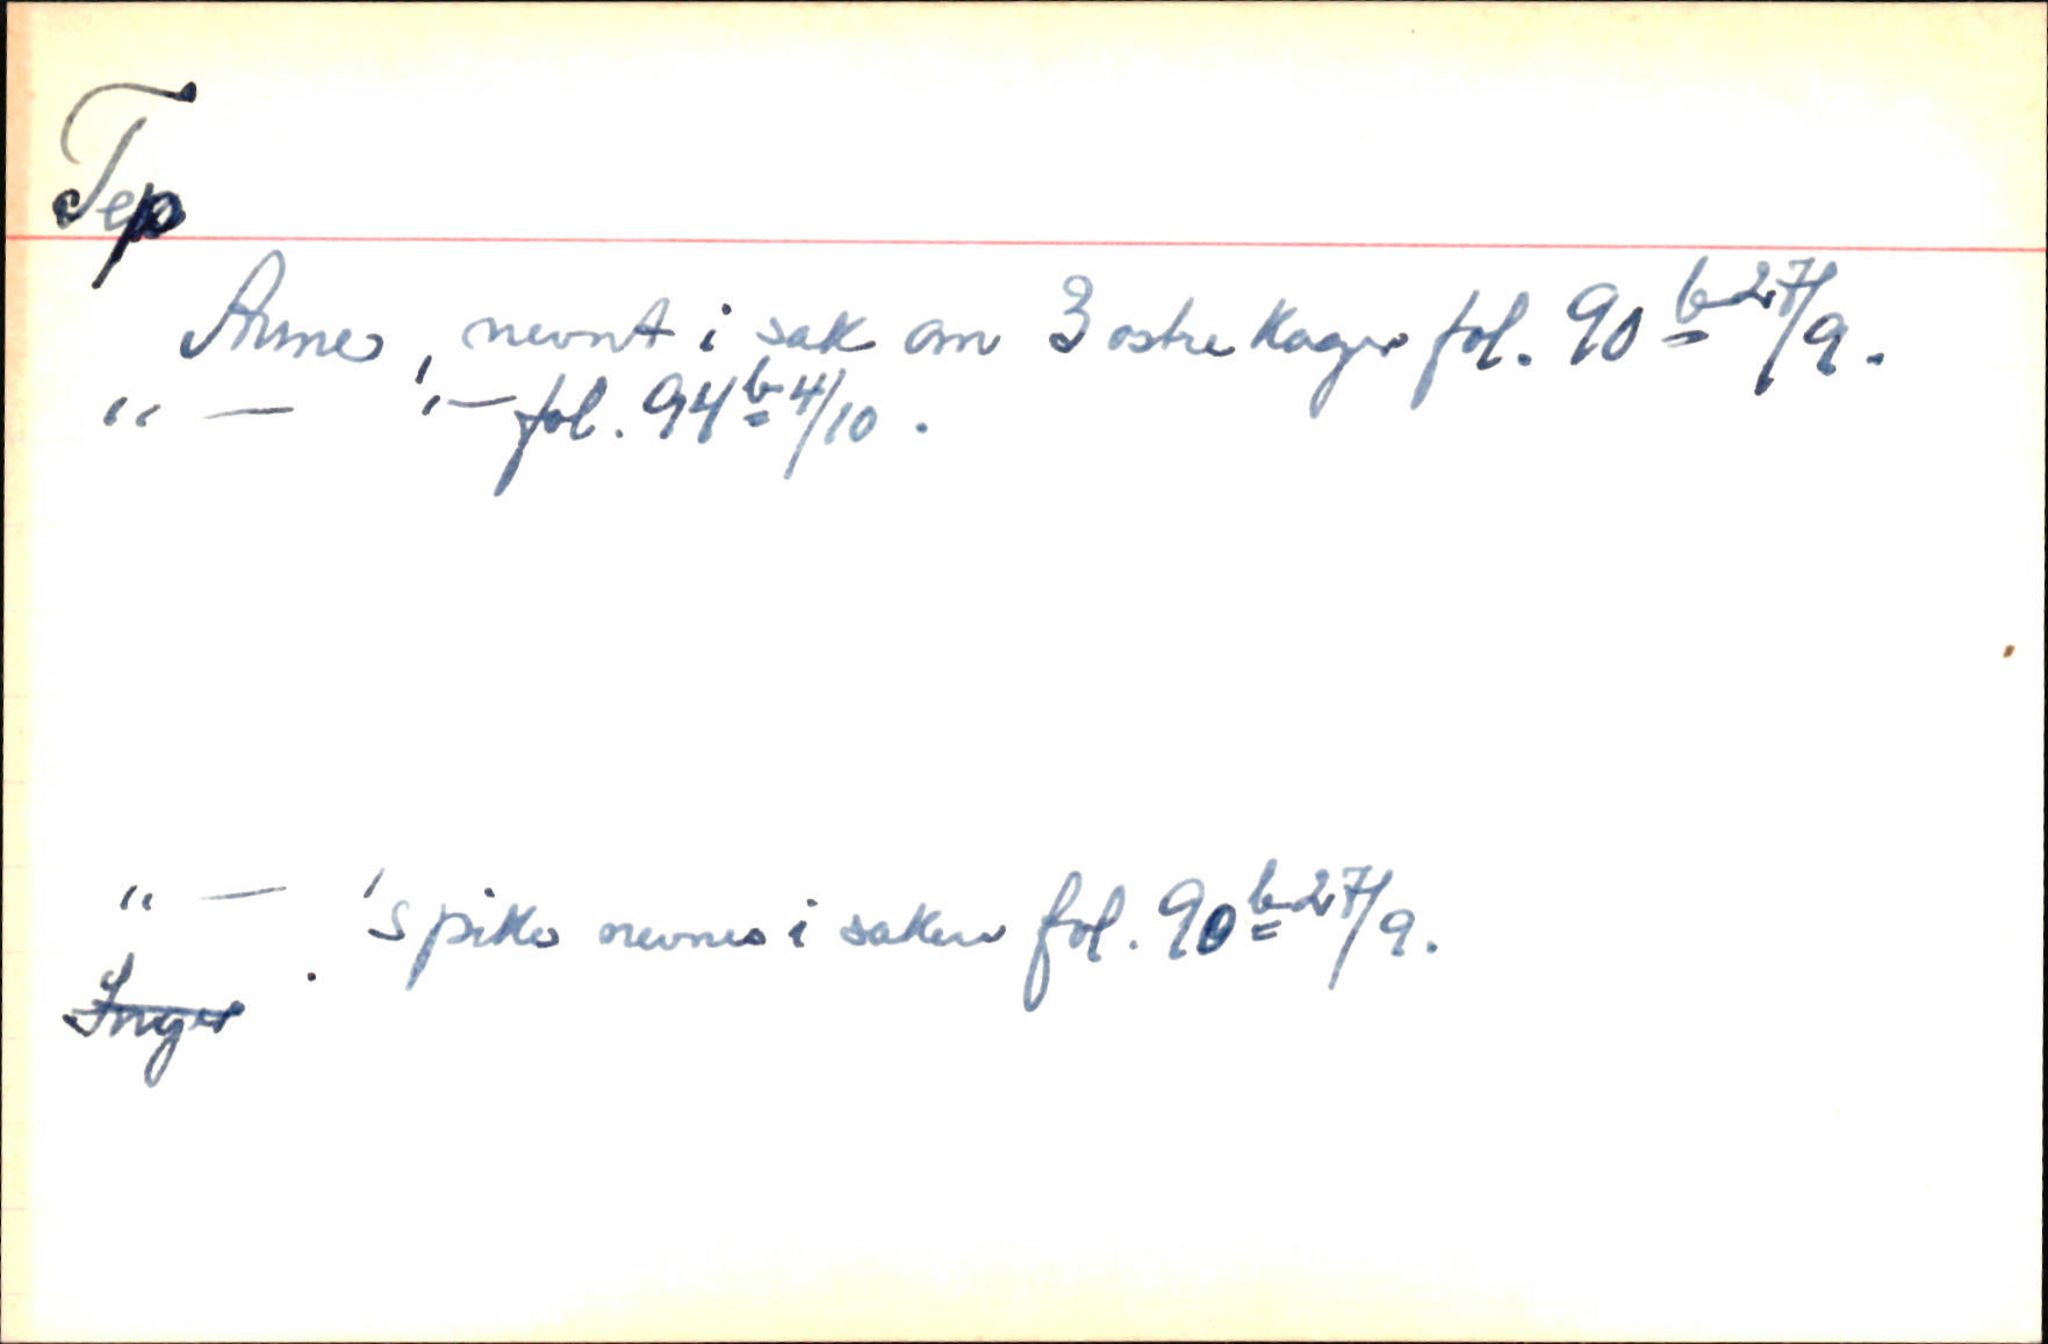 Tep
Anne, nevnt i sak om 3 ostre kager fol. 90 b 27/9.
" — , — fol. 94 b 4/10.
" — 's pike nevnes i saken fol. 90 b 27/9.
Inger